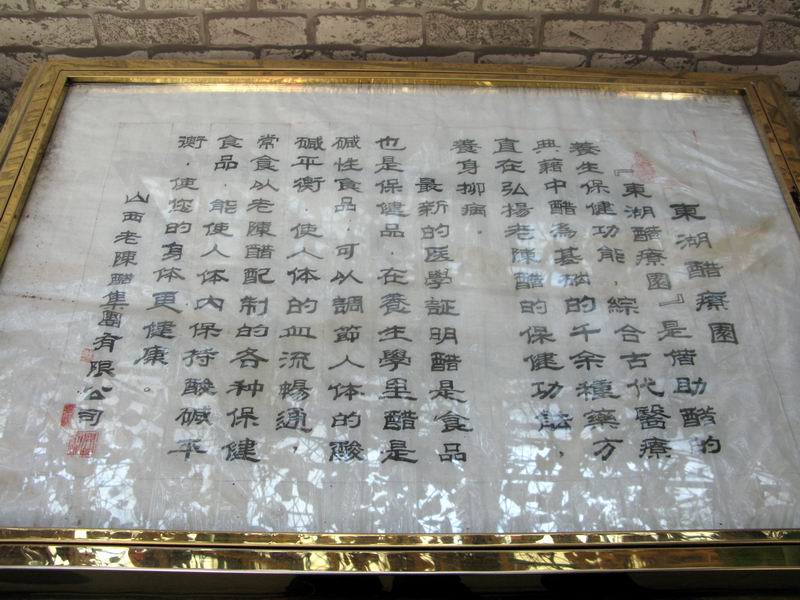 東湖醋療園
『東湖醋療園』是借助醋的
養生保健功能，綜合古代醫療
典藉中醋為基础的千余種藥方
直在弘揚老陳醋的保健功能，
養身抑病。
最新的医學証明醋是食品
也是保健品．在養生學里醋是
碱性食品．可以調節人体的酸
碱平衡．使人体的血流暢通，
常食以老陳醋配制的各种保健
食品．能使人体内保持酸碱平
衡．使您的身体更健康。
山西老陳醋集團有限公司